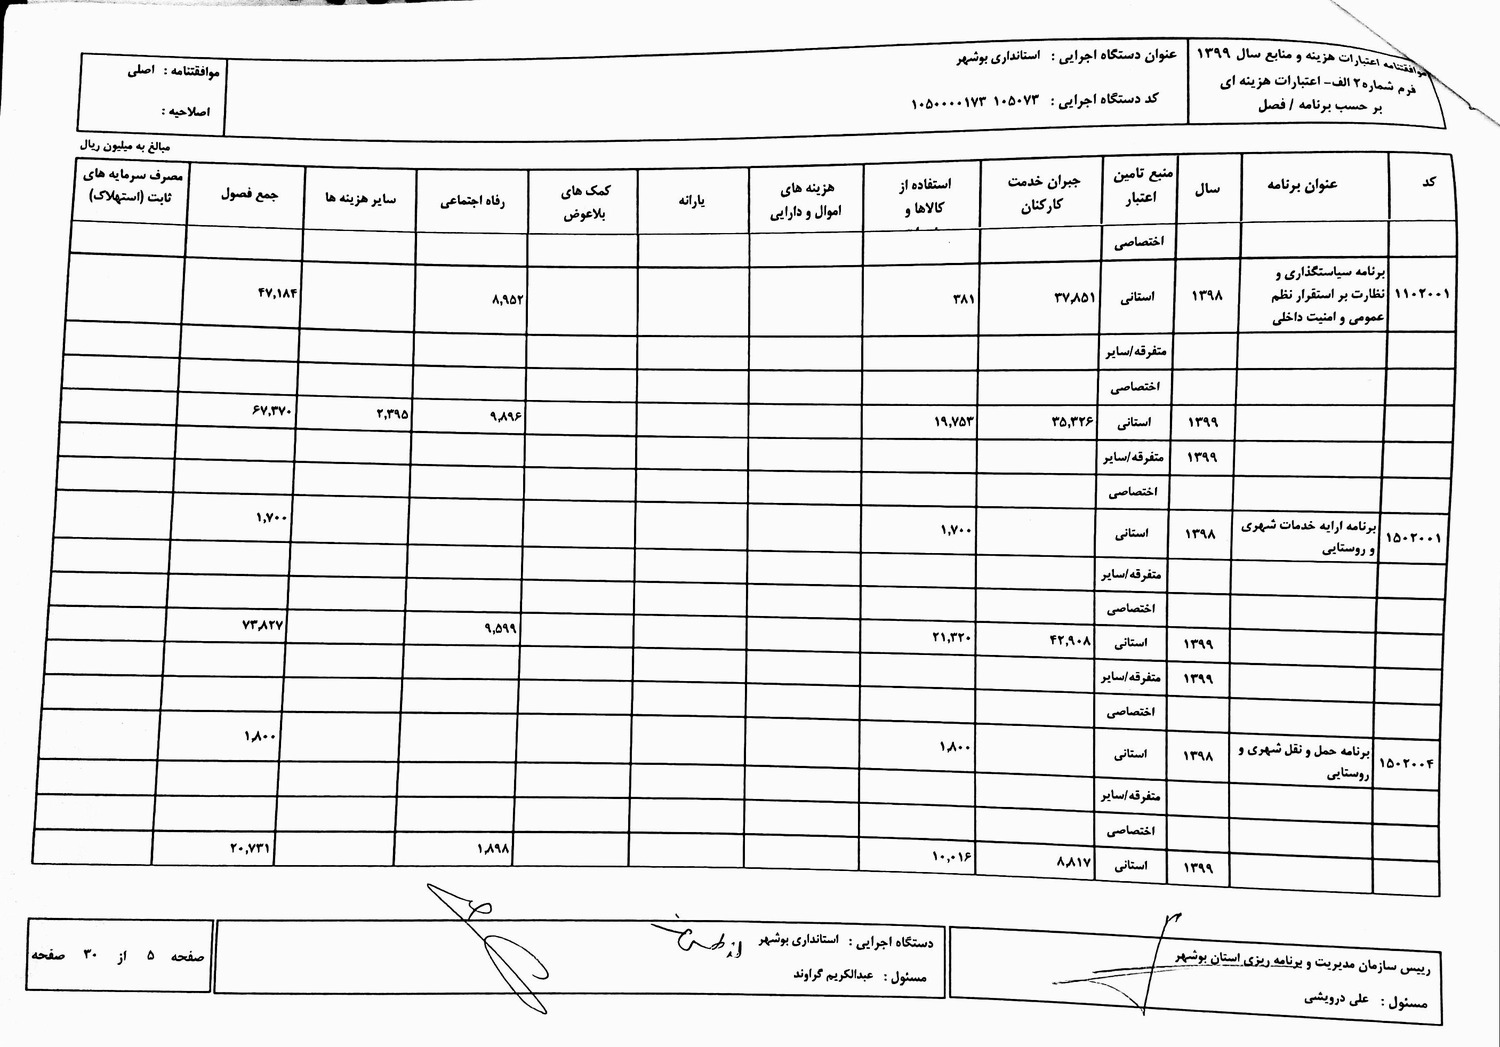 موافقتنامه اعتبارات هزینه و منابع سال ۱۳۹۹
فرم شماره۲ الف- اعتبارات هزینه ای
بر حسب برنامه / فصل
عنوان دستگاه اجرایی : استانداری بوشهر
کد دستگاه اجرایی : ۱۰۵۰۷۳ ۱۰۵۰۰۰۰۱۷۳
موافقتنامه : اصلی
اصلاحیه :
مبالغ به میلیون ریال
کد عنوان برنامه سال منبع تامین اعتبار جبران خدمت کارکنان استفاده از کالاها و هزینه های اموال و دارایی یارانه کمک های بلاعوض رفاه اجتماعی سایر هزینه ها جمع فصول مصرف سرمایه های ثابت (استهلاک)
اختصاصی
۱۱۰۲۰۰۱ برنامه سیاستگذاری و نظارت بر استقرار نظم عمومی و امنیت داخلی ۱۳۹۸ استانی ۳۷,۸۵۱ ۳۸۱ ۸,۹۵۲ ۴۷,۱۸۴
متفرقه/سایر
اختصاصی
۱۳۹۹ استانی ۳۵,۳۲۶ ۱۹,۷۵۳ ۹,۸۹۶ ۲,۳۹۵ ۶۷,۳۷۰
۱۳۹۹ متفرقه/سایر
اختصاصی
۱۵۰۲۰۰۱ برنامه ارایه خدمات شهری و روستایی ۱۳۹۸ استانی ۱,۷۰۰ ۱,۷۰۰
متفرقه/سایر
اختصاصی
۱۳۹۹ استانی ۴۲,۹۰۸ ۲۱,۳۲۰ ۹,۵۹۹ ۷۳,۸۲۷
۱۳۹۹ متفرقه/سایر
اختصاصی
۱۵۰۲۰۰۴ برنامه حمل و نقل شهری و روستایی ۱۳۹۸ استانی ۱,۸۰۰ ۱,۸۰۰
متفرقه/سایر
اختصاصی
۱۳۹۹ استانی ۸,۸۱۷ ۱۰,۰۱۶ ۱,۸۹۸ ۲۰,۷۳۱
رییس سازمان مدیریت و برنامه ریزی استان بوشهر
مسئول : علی درویشی
دستگاه اجرایی : استانداری بوشهر
مسئول : عبدالکریم گراوند
صفحه ۵ از ۳۰ صفحه